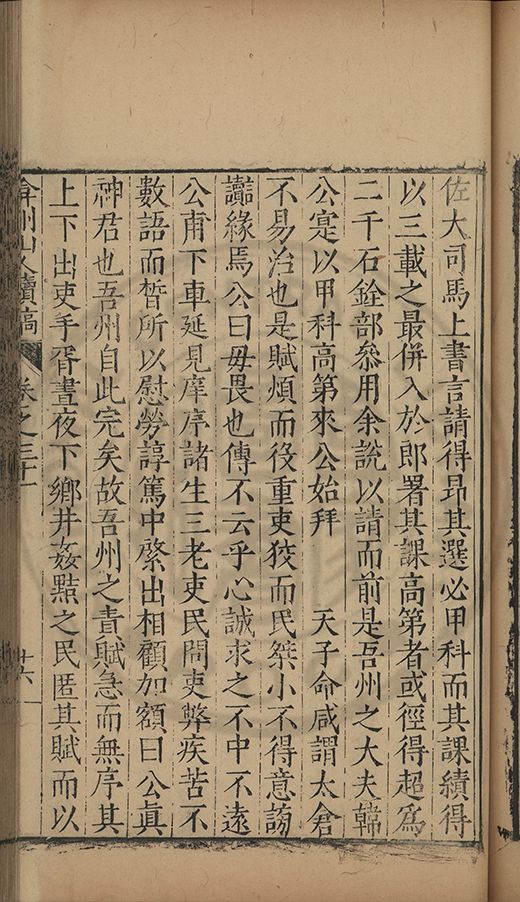 佐大司馬上書言請得昂其選必甲科而其課績得
以三載之最併入於郎署其課高第者或徑得超為
二千石銓部叅用余說以請而前是吾州之大夫韓
公寔以甲科高第來公始拜　　天子命咸謂太倉
不易治也是賦煩而役重吏狡而民桀小不得意謗
讟緣焉公曰毋畏也傳不云乎心誠求之不中不遠
公甫下車延見庠序諸生三老吏民問吏弊疾苦不
數語而皙所以慰勞諄篤中綮出相顧加額曰公眞
神君也吾州自此完矣故吾州之責賦急而無序其
上下出吏手胥晝夜下鄉井姦黠之民匿其賦而以
弇州山人續稿　卷之三十一　廿六